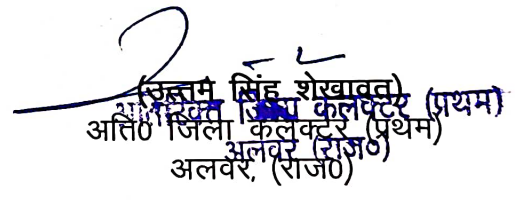 (उत्तम सिंह शेखावत)
अतिरिक्त जिला कलेक्टर (प्रथम)
अति0 जिला कलेक्टर (प्रथम)
अलवर (राज०)
अलवर, (राज0)